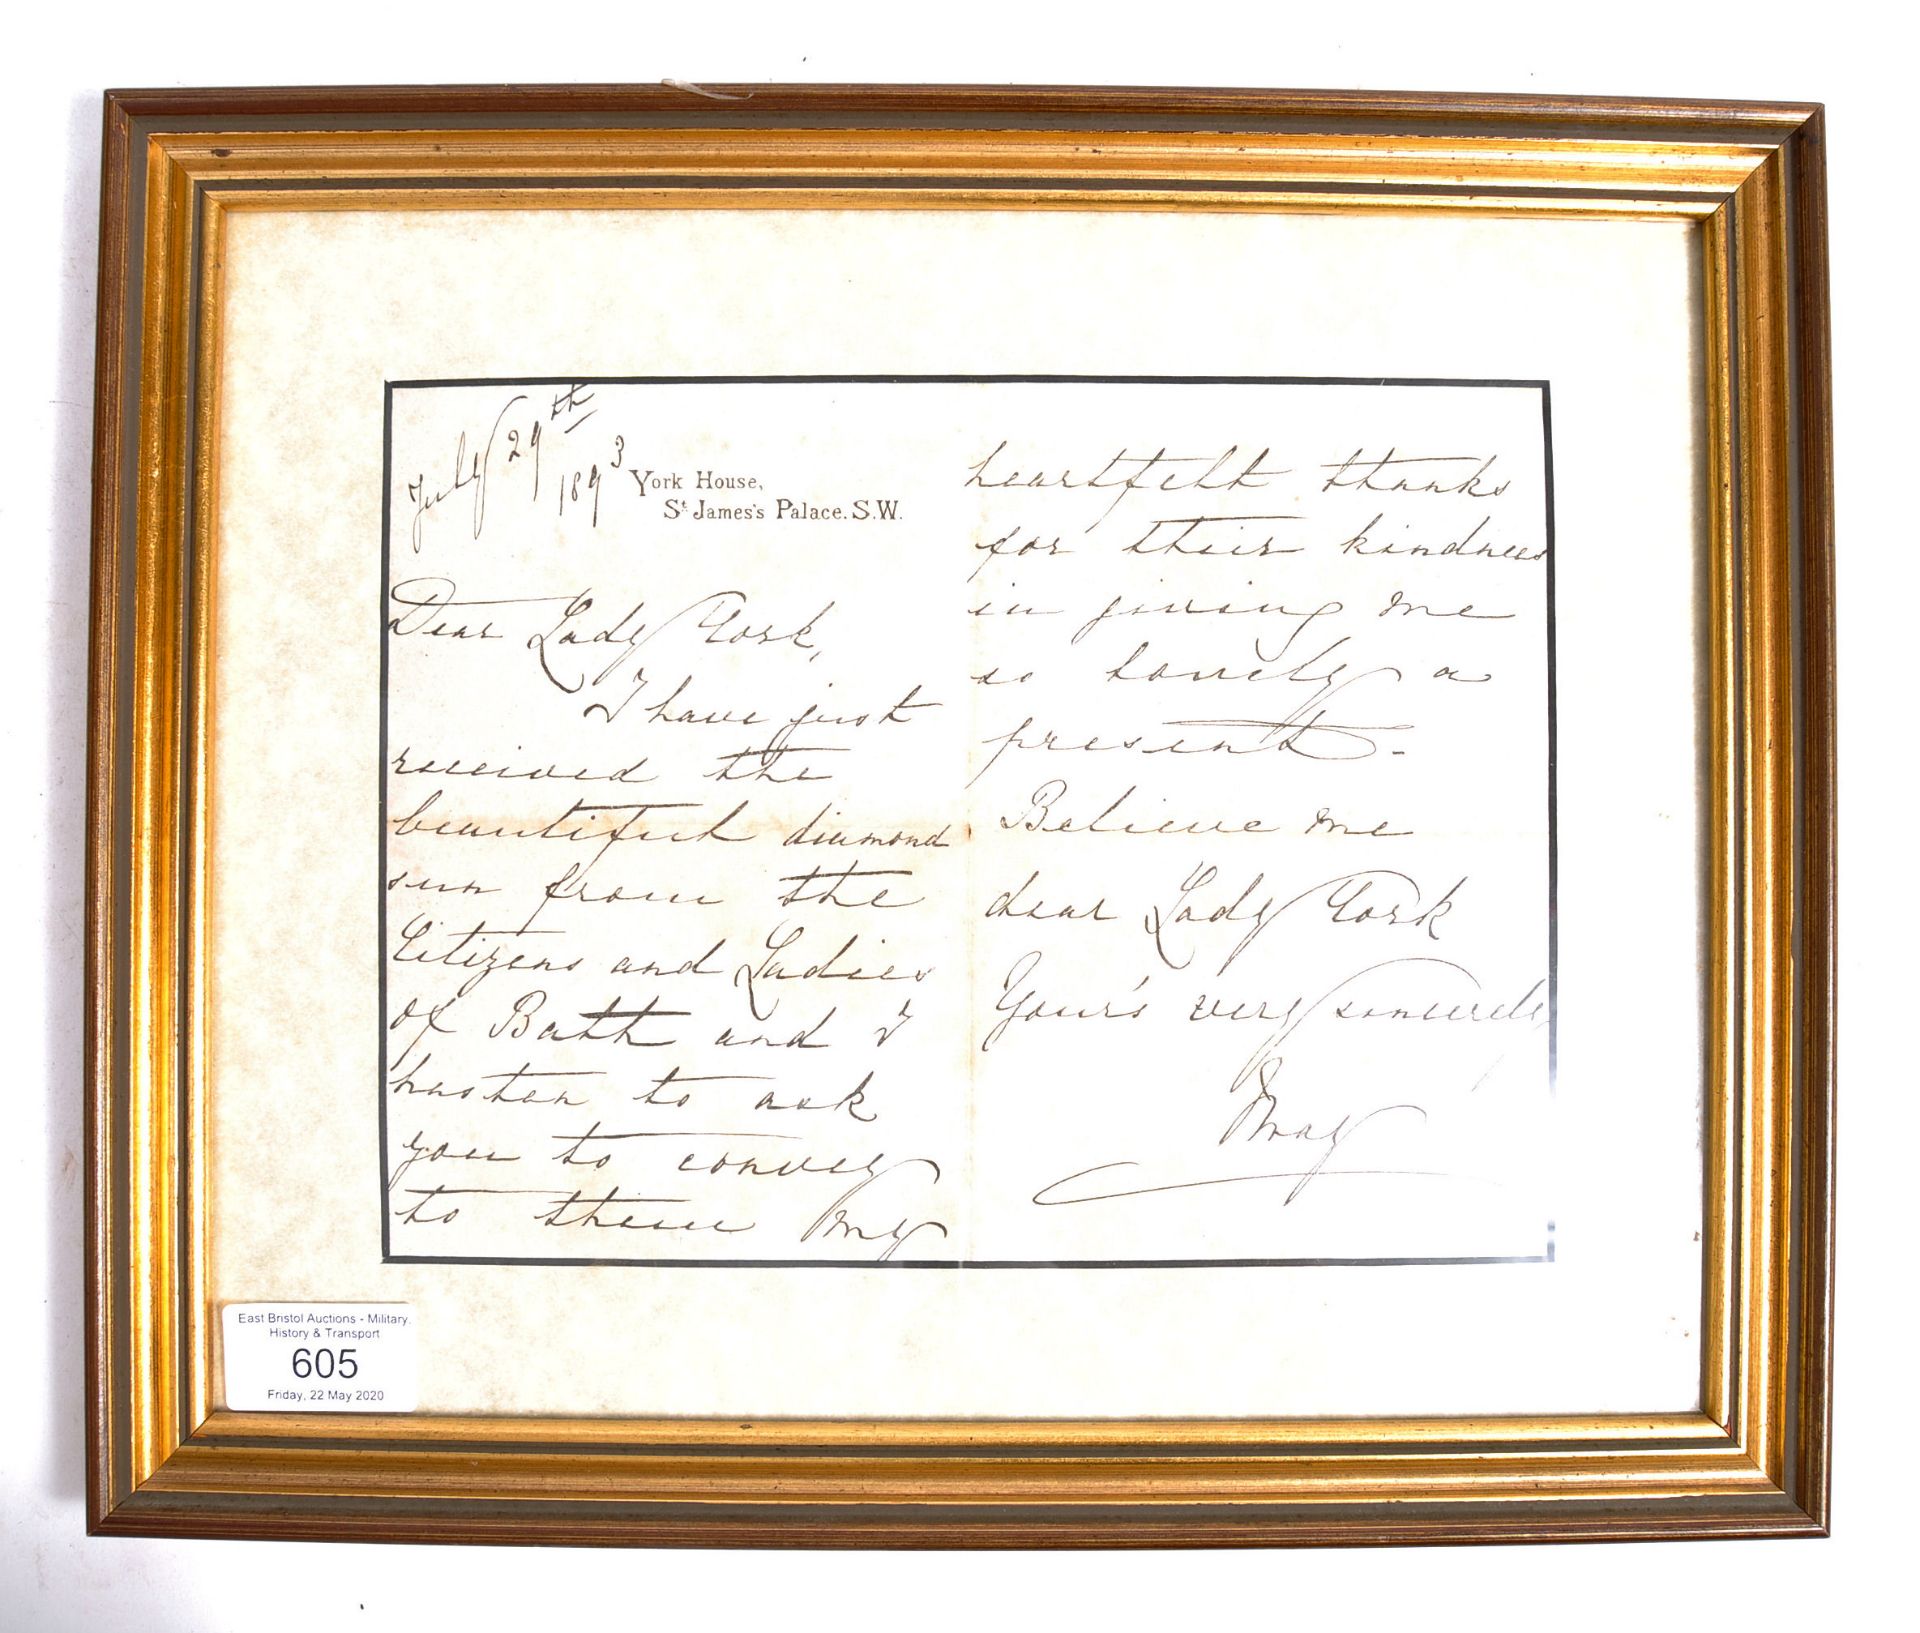 July 29th
1893
York House,
St. James's Palace. S.W.
Dear Lady York,
I have just
received the
beautiful diamond
sun from the
Citizens and Ladies
of Bath and I
hasten to ask
you to convey
to them my
heartfelt thanks
for their kindness
in giving me
so lovely a
present-
Believe me
dear Lady York
Your's very sincerely
May
East Bristol Auctions - Military,
History & Transport
605
Friday, 22 May 2020